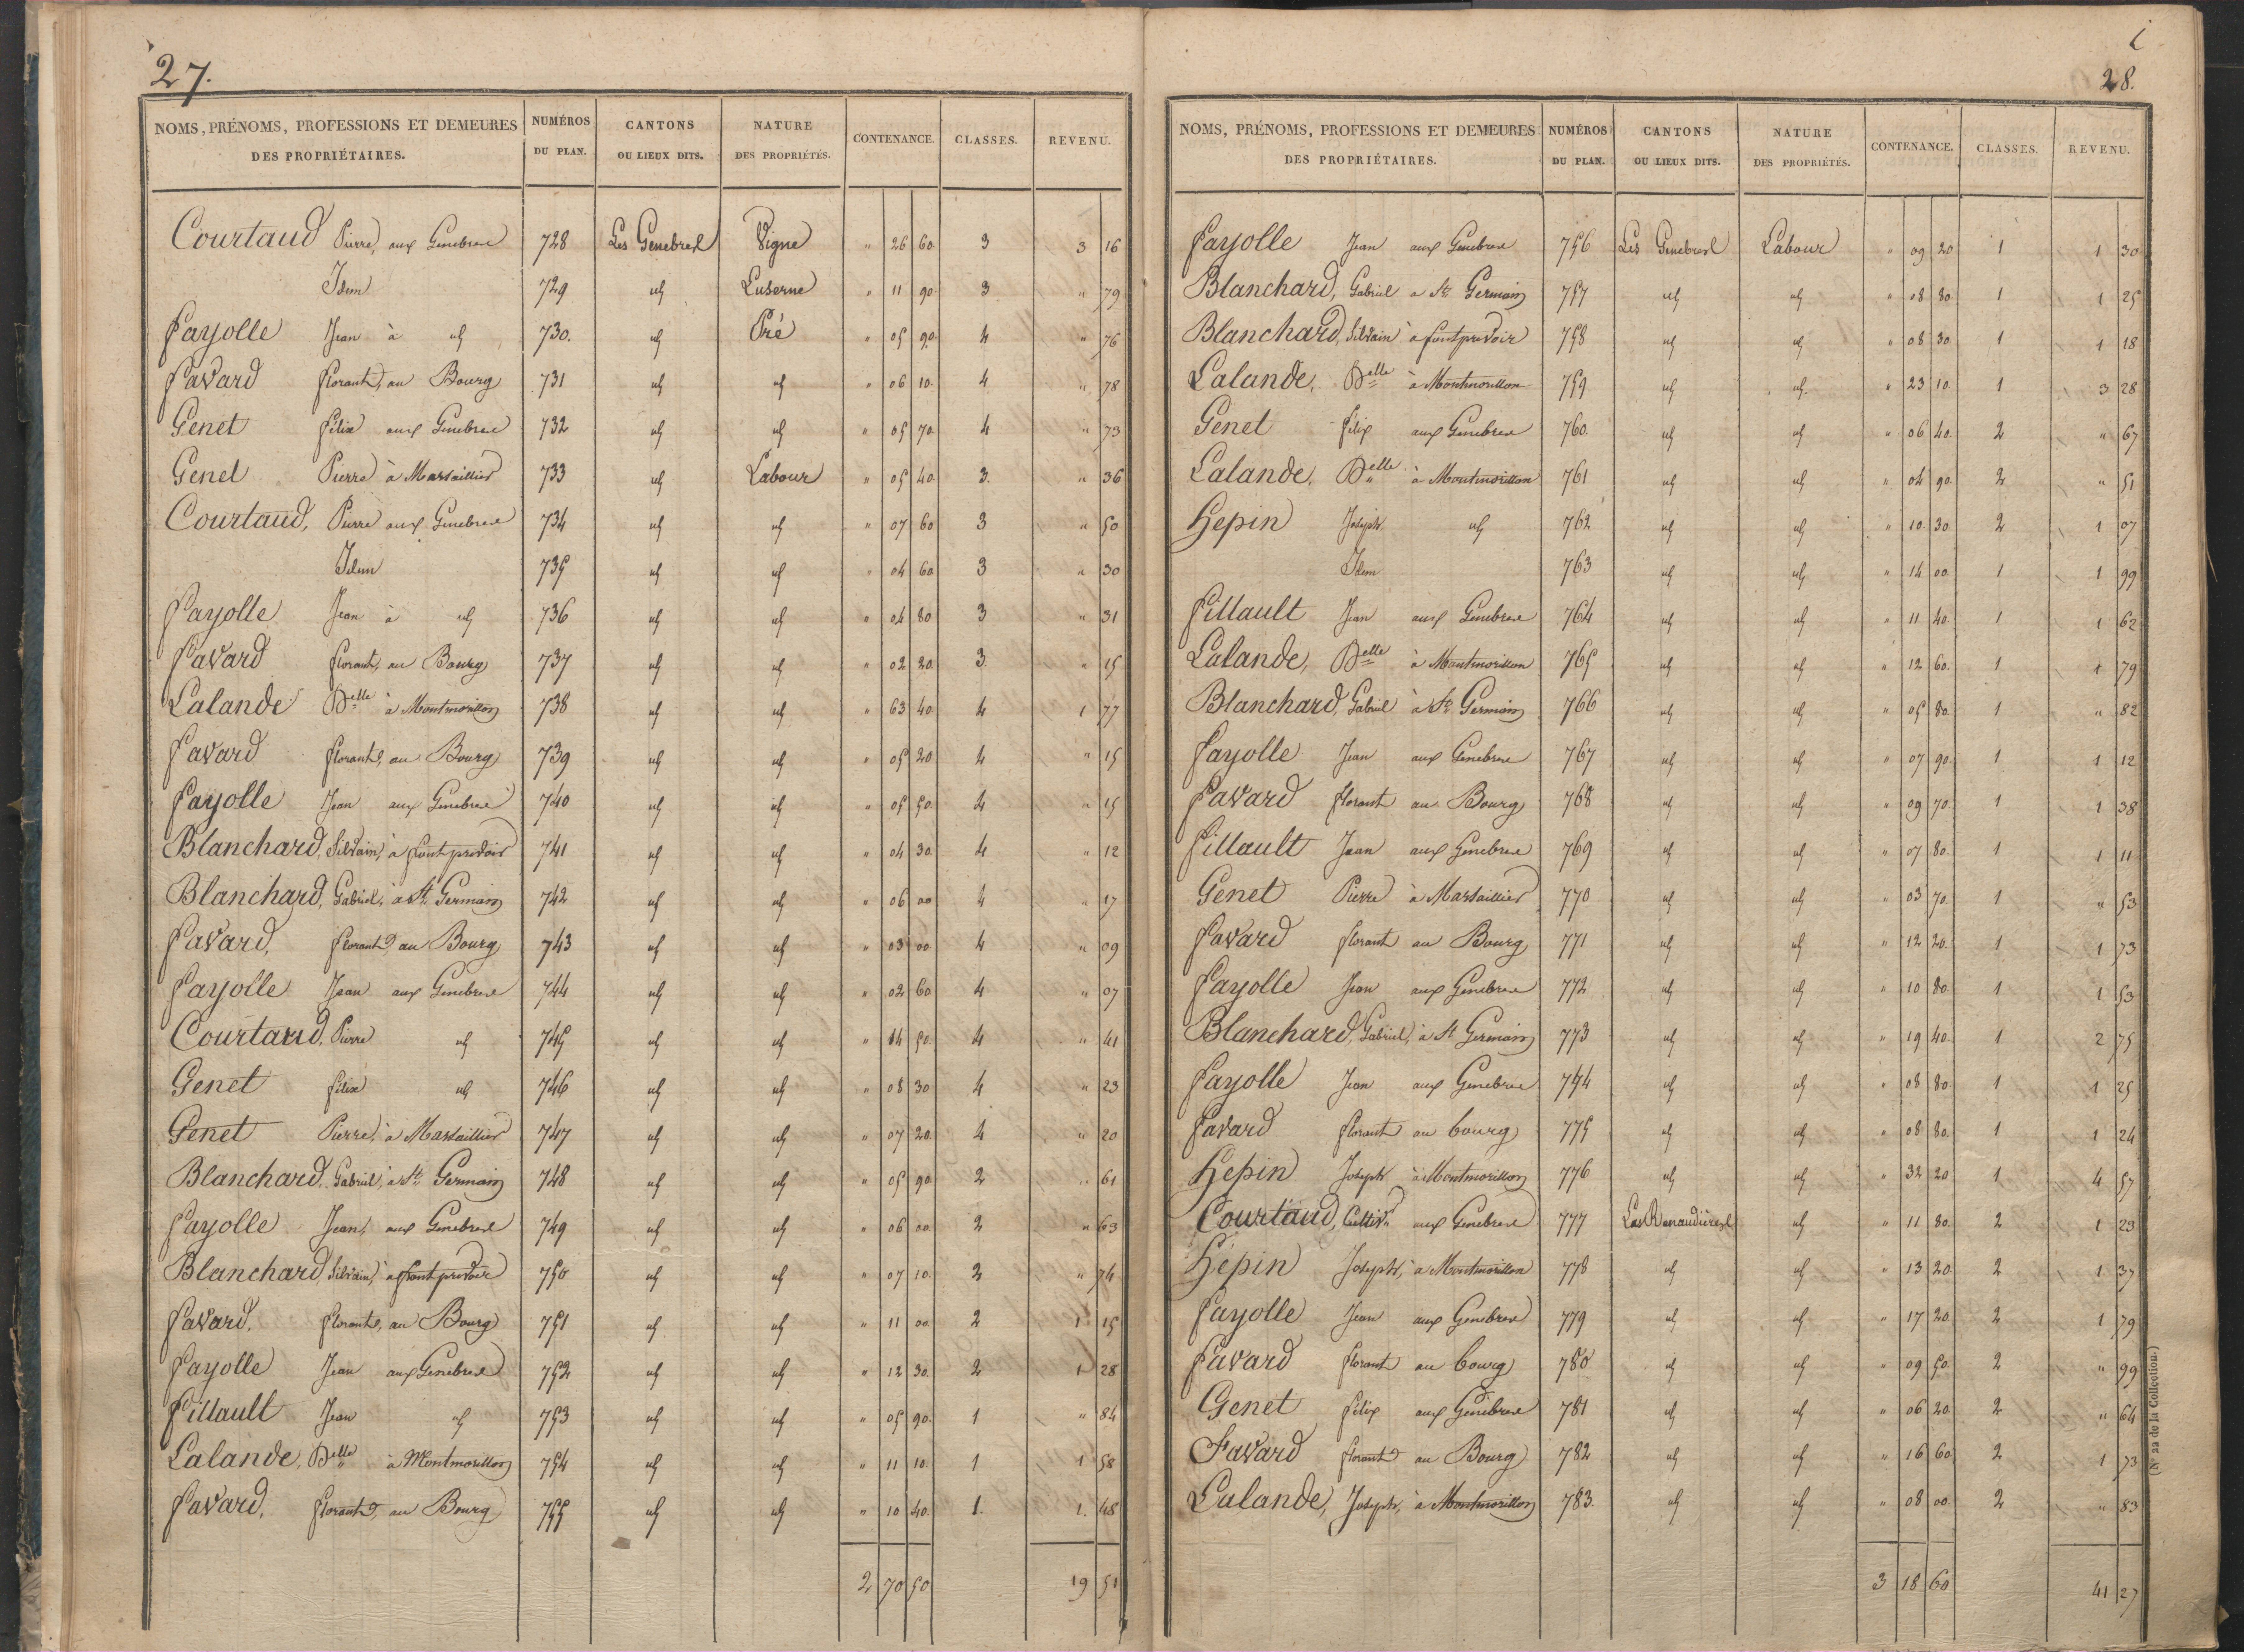 27.
NOMS, PRÉNOMS, PROFESSIONS ET DEMEURES DES PROPRIÉTAIRES. NUMÉROS DU PLAN. CANTONS OU LIEUX DITS. NATURE DES PROPRIÉTÉS. CONTENANCE. CLASSES. REVENU.
Courtaud Pierre, aux Genebres 728 Les Genebres Vigne " 26 60 3 3 16
Idem 729 id Luserne " 11 90 3 " 79
Fayolle Jean à id 730. id Pré " 05 90 4 " 76
Favard florant, au Bourg 731 id id " 06 10 4 " 78
Genet félix aux Genebres 732 id id " 05 70 4 " 73
Genet Pierre à Marsaillier 733 id Labour " 05 40 3. " 36
Courtaud, Pierre aux Genebres 734 id id " 07 60 3 " 50
Idem 735 id id " 04 60 3 " 30
Fayolle Jean à id 736 id id " 04 80 3 " 31
Favard florant, au Bourg 737 id id " 02 20 3 " 15
Lalande Delle à Montmorillon 738 id id " 63 40 4 1 77
Favard florant, au Bourg 739 id id " 05 20 4 " 15
Fayolle Jean aux Genebres 740 id id " 05 50 4 " 15
Blanchard, Silvain, à fontprevoir 741 id id " 04 30 4 " 12
Blanchard, Gabriel, à St Germain 742 id id " 06 00 4 " 17
Favard, florant, au Bourg 743 id id " 03 00 4 " 09
Fayolle Jean aux Genebres 744 id id " 02 60 4 " 07
Courtaud, Pierre id 745 id id " 14 50 4 " 41
Genet félix id 746 id id " 08 30 4 " 23
Genet Pierre, à Marsaillier 747 id id " 07 20 4 " 20
Blanchard, Gabriel, à St Germain 748 id id " 05 90 2 " 61
Fayolle Jean, aux Genebres 749 id id " 06 00 2 " 63
Blanchard, Silvain, à fontprevoir 750 id id " 07 10 2 " 74
Favard, florant, au Bourg 751 id id " 11 00 2 1 15
Fayolle Jean aux Genebres 752 id id " 12 30 2 1 28
Fillault Jean id 753 id id " 05 90 1 " 84
Lalande, Delle à Montmorillon 754 id id " 11 10 1 1 58
Favard, florant, au Bourg 755 id id " 10 40 1. 1. 48
2 70 50 19 51
28.
NOMS, PRÉNOMS, PROFESSIONS ET DEMEURES DES PROPRIÉTAIRES. NUMÉROS DU PLAN. CANTONS OU LIEUX DITS. NATURE DES PROPRIÉTÉS. CONTENANCE. CLASSES. REVENU.
Fayolle Jean aux Genebres 756 Les Genebres Labour " 09 20 1 1 30
Blanchard, Gabriel à St Germain 757 id id " 08 80 1 1 25
Blanchard, Silvain à fontprevoir 758 id id " 08 30 1 1 18
Lalande, Delle à Montmorillon 759 id id " 23 10 1 3 28
Genet félix aux Genebres 760 id id " 06 40 2 " 67
Lalande, Delle à Montmorillon 761 id id " 04 90 2 " 51
Hepin Joseph id 762 id id " 10 30 2 1 07
Idem 763 id id " 14 00 1 1 99
Fillault Jean aux Genebres 764 id id " 11 40 1 1 62
Lalande, Delle à Montmorillon 765 id id " 12 60 1 1 79
Blanchard, Gabriel à St Germain 766 id id " 05 80 1 " 82
Fayolle Jean aux Genebres 767 id id " 07 90 1 1 12
Favard florant au Bourg 768 id id " 09 70 1 1 38
Fillault Jean aux Genebres 769 id id " 07 80 1 1 11
Genet Pierre à Marsaillier 770 id id " 03 70 1 " 53
Favard florant au Bourg 771 id id " 12 20 1 1 73
Fayolle Jean aux Genebres 772 id id " 10 80 1 1 53
Blanchard, Gabriel, à St Germain 773 id id " 19 40 1 2 75
Fayolle Jean aux Genebres 774 id id " 08 80 1 1 25
Favard florant au bourg 775 id id " 08 80 1 1 24
Hepin Joseph à Montmorillon 776 id id " 32 20 1 4 57
Courtaud, Cultivr aux Genebres 777 Les Renaudières id " 11 80 2 1 23
Hepin Joseph, à Montmorillon 778 id id " 13 20 2 1 37
Fayolle Jean aux Genebres 779 id id " 17 20 2 1 79
Favard florant au bourg 780 id id " 09 50 2 " 99
Genet félix aux Genebres 781 id id " 06 20 2 " 64
Favard florant au Bourg 782 id id " 16 60 2 1 73
Lalande, Joseph, à Montmorillon 783. id id " 08 00 2 " 83
3 18 60 41 27
(N° 22 de la Collection.)